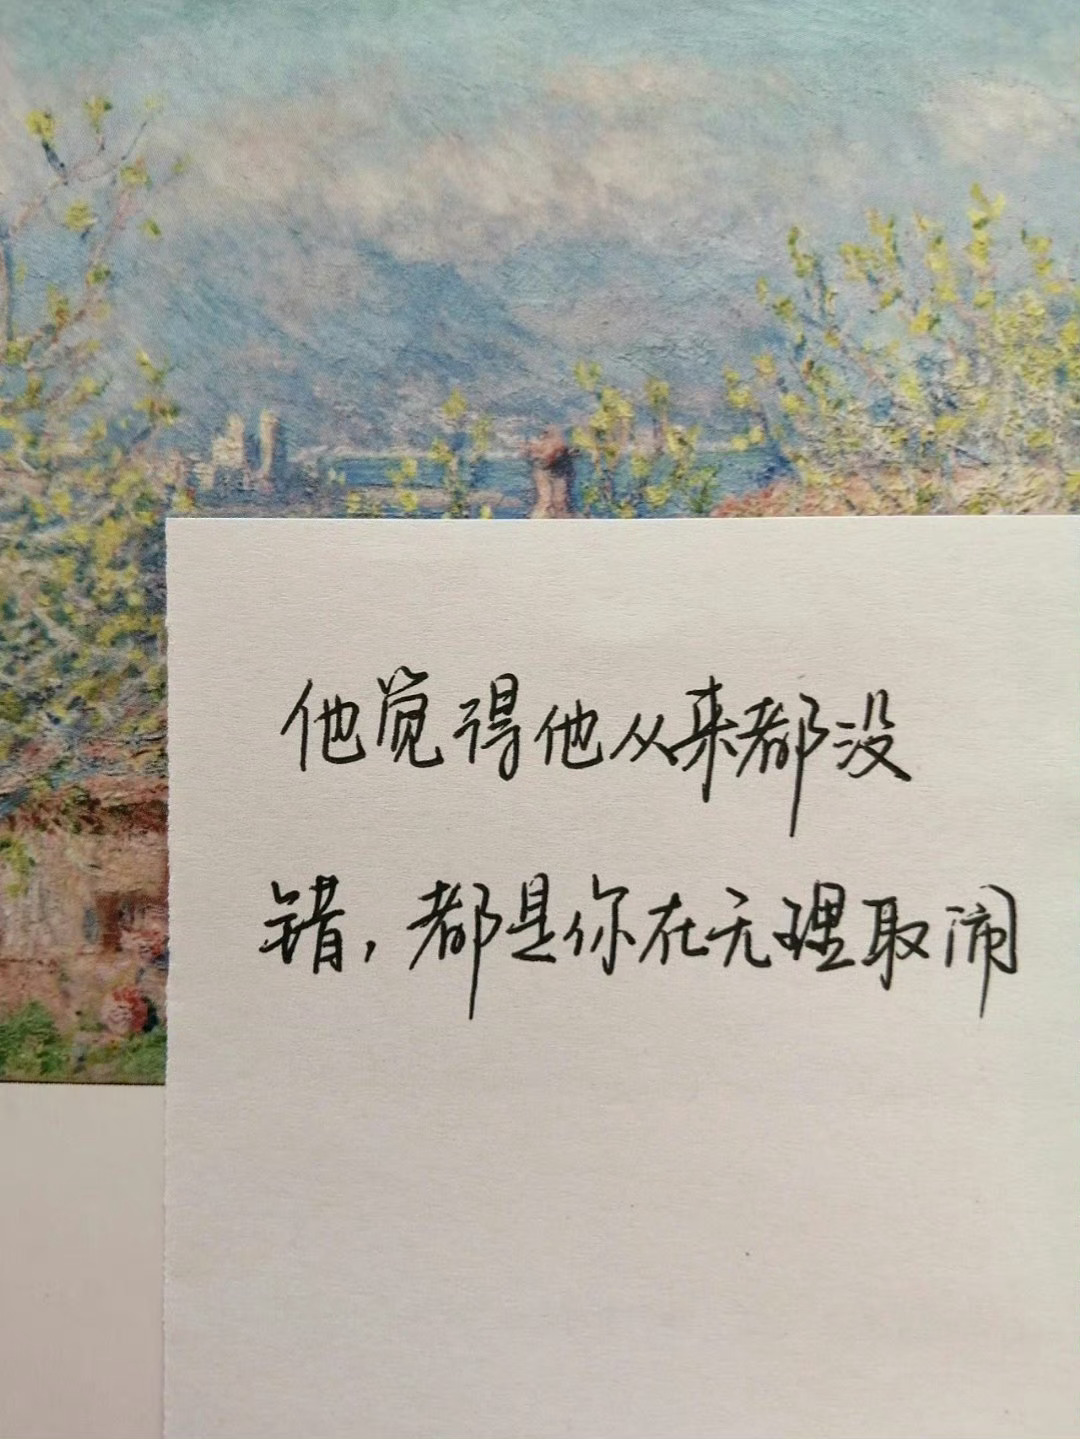 他觉得他从来都没
错，都是你在无理取闹